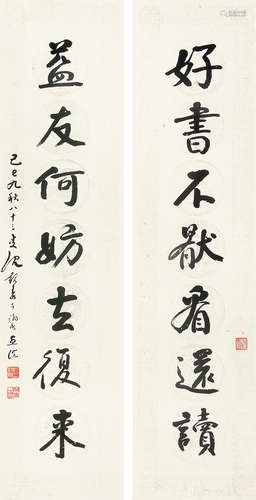 好書不猒看還讀
益友何妨去復來
己巳九秋八十二叟沈